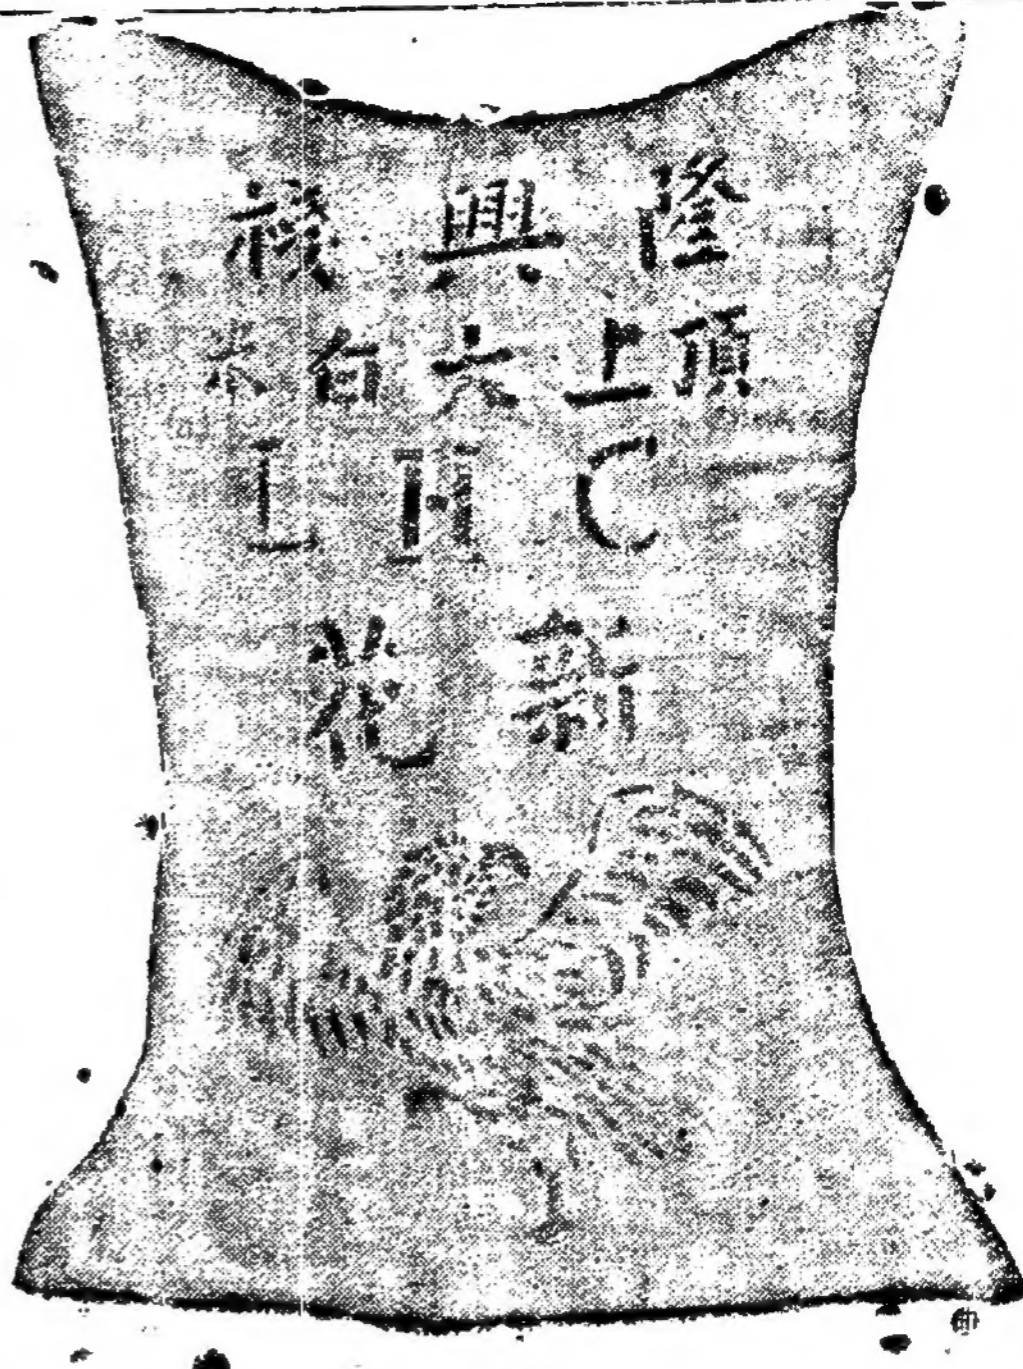 隆興棧
頂上六白米
L H C
新花